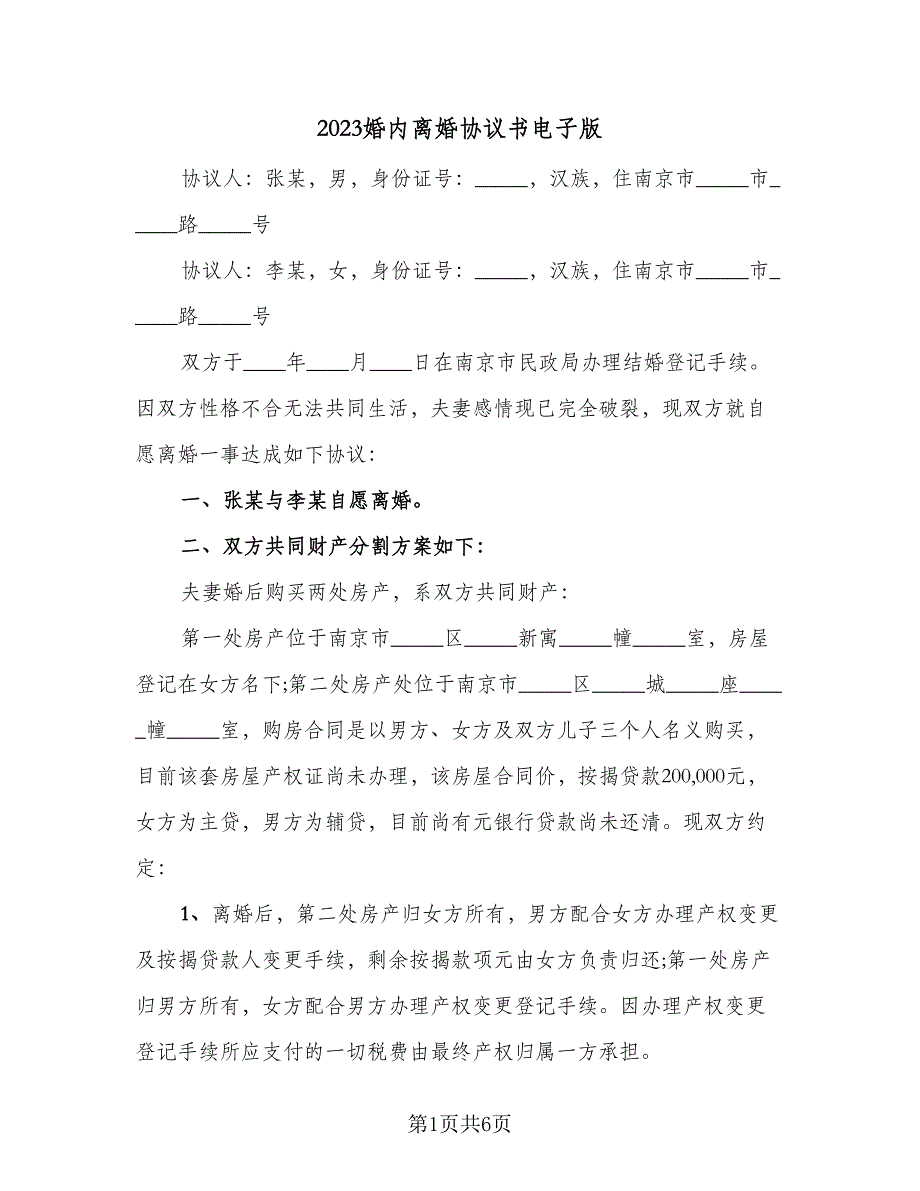 2023婚内离婚协议书电子版
协议人：张某，男，身份证号：_____，汉族，住南京市_____市_
____路_____号
协议人：李某，女，身份证号：_____，汉族，住南京市_____市_
____路_____号
双方于____年____月____日在南京市民政局办理结婚登记手续。
因双方性格不合无法共同生活，夫妻感情现已完全破裂，现双方就自
愿离婚一事达成如下协议：
一、张某与李某自愿离婚。
二、双方共同财产分割方案如下：
夫妻婚后购买两处房产，系双方共同财产：
第一处房产位于南京市_____区_____新寓_____幢_____室，房屋
登记在女方名下;第二处房产处位于南京市_____区_____城_____座____
_幢_____室，购房合同是以男方、女方及双方儿子三个人名义购买，
目前该套房屋产权证尚未办理，该房屋合同价，按揭贷款200,000元，
女方为主贷，男方为辅贷，目前尚有元银行贷款尚未还清。现双方约
定：
1、离婚后，第二处房产归女方所有，男方配合女方办理产权变更
及按揭贷款人变更手续，剩余按揭款项元由女方负责归还;第一处房产
归男方所有，女方配合男方办理产权变更登记手续。因办理产权变更
登记手续所应支付的一切税费由最终产权归属一方承担。
第1页共6页